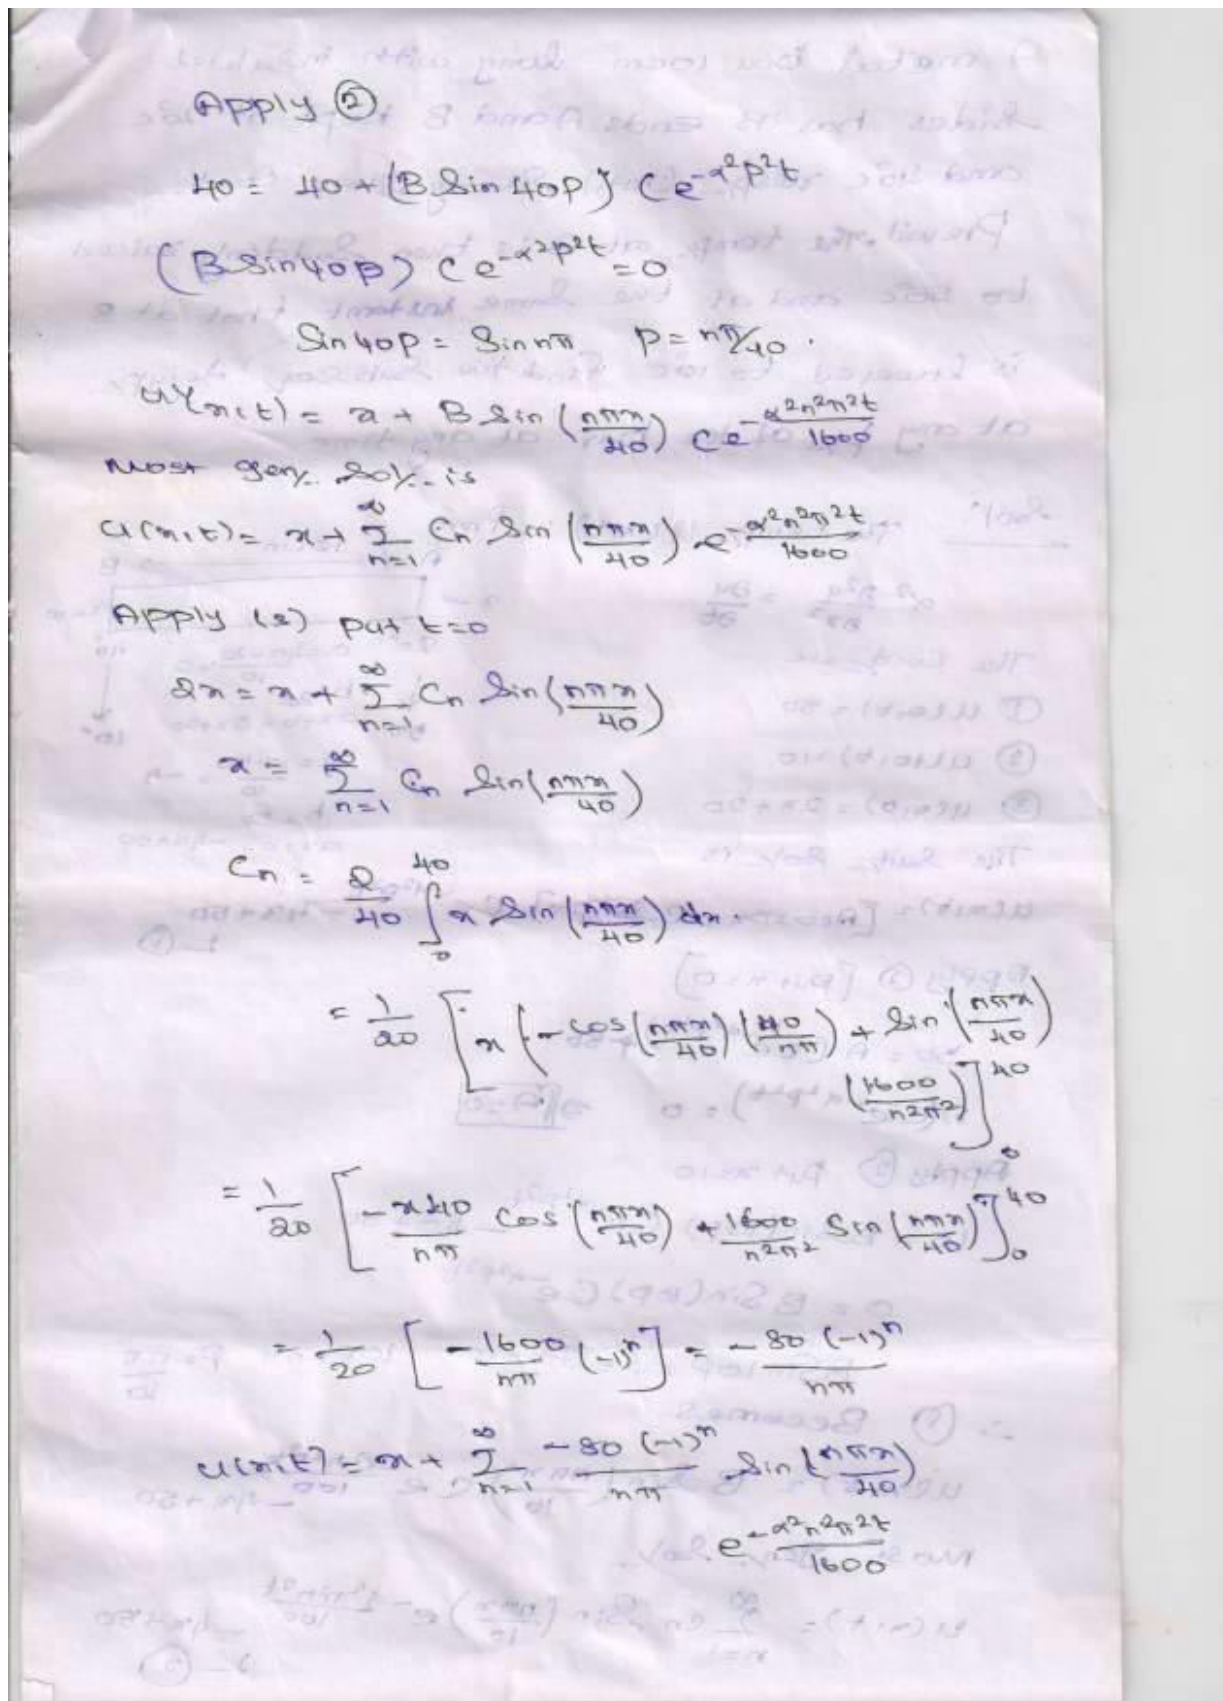 Apply ②
40 = 40 + (B Sin 40p) C e^{-α²p²t}
(B Sin 40p) C e^{-α²p²t} = 0
Sin 40p = Sin nπ  p = nπ/40 .
u(x,t) = x + B Sin (nπx/40) C e^{-α²n²π²t/1600}
Most gen. Sol. is
u(x,t) = x + ∑_{n=1}^{∞} Cn Sin (nπx/40) e^{-α²n²π²t/1600}
Apply (3) put t=0
2x = x + ∑_{n=1}^{∞} Cn Sin (nπx/40)
x = ∑_{n=1}^{∞} Cn Sin (nπx/40)
Cn = 2/40 ∫_0^{40} x Sin (nπx/40) dx.
= 1/20 [ x (-cos (nπx/40) (40/nπ) + Sin (nπx/40)
(1600/n²π²) ]_0^{40}
= 1/20 [ -x40/nπ cos (nπx/40) + 1600/n²π² Sin (nπx/40) ]_0^{40}
= 1/20 [ -1600/nπ (-1)^n ] = -80 (-1)^n / nπ
u(x,t) = x + ∑_{n=1}^{∞} -80 (-1)^n / nπ Sin (nπx/40)
e^{-α²n²π²t/1600}